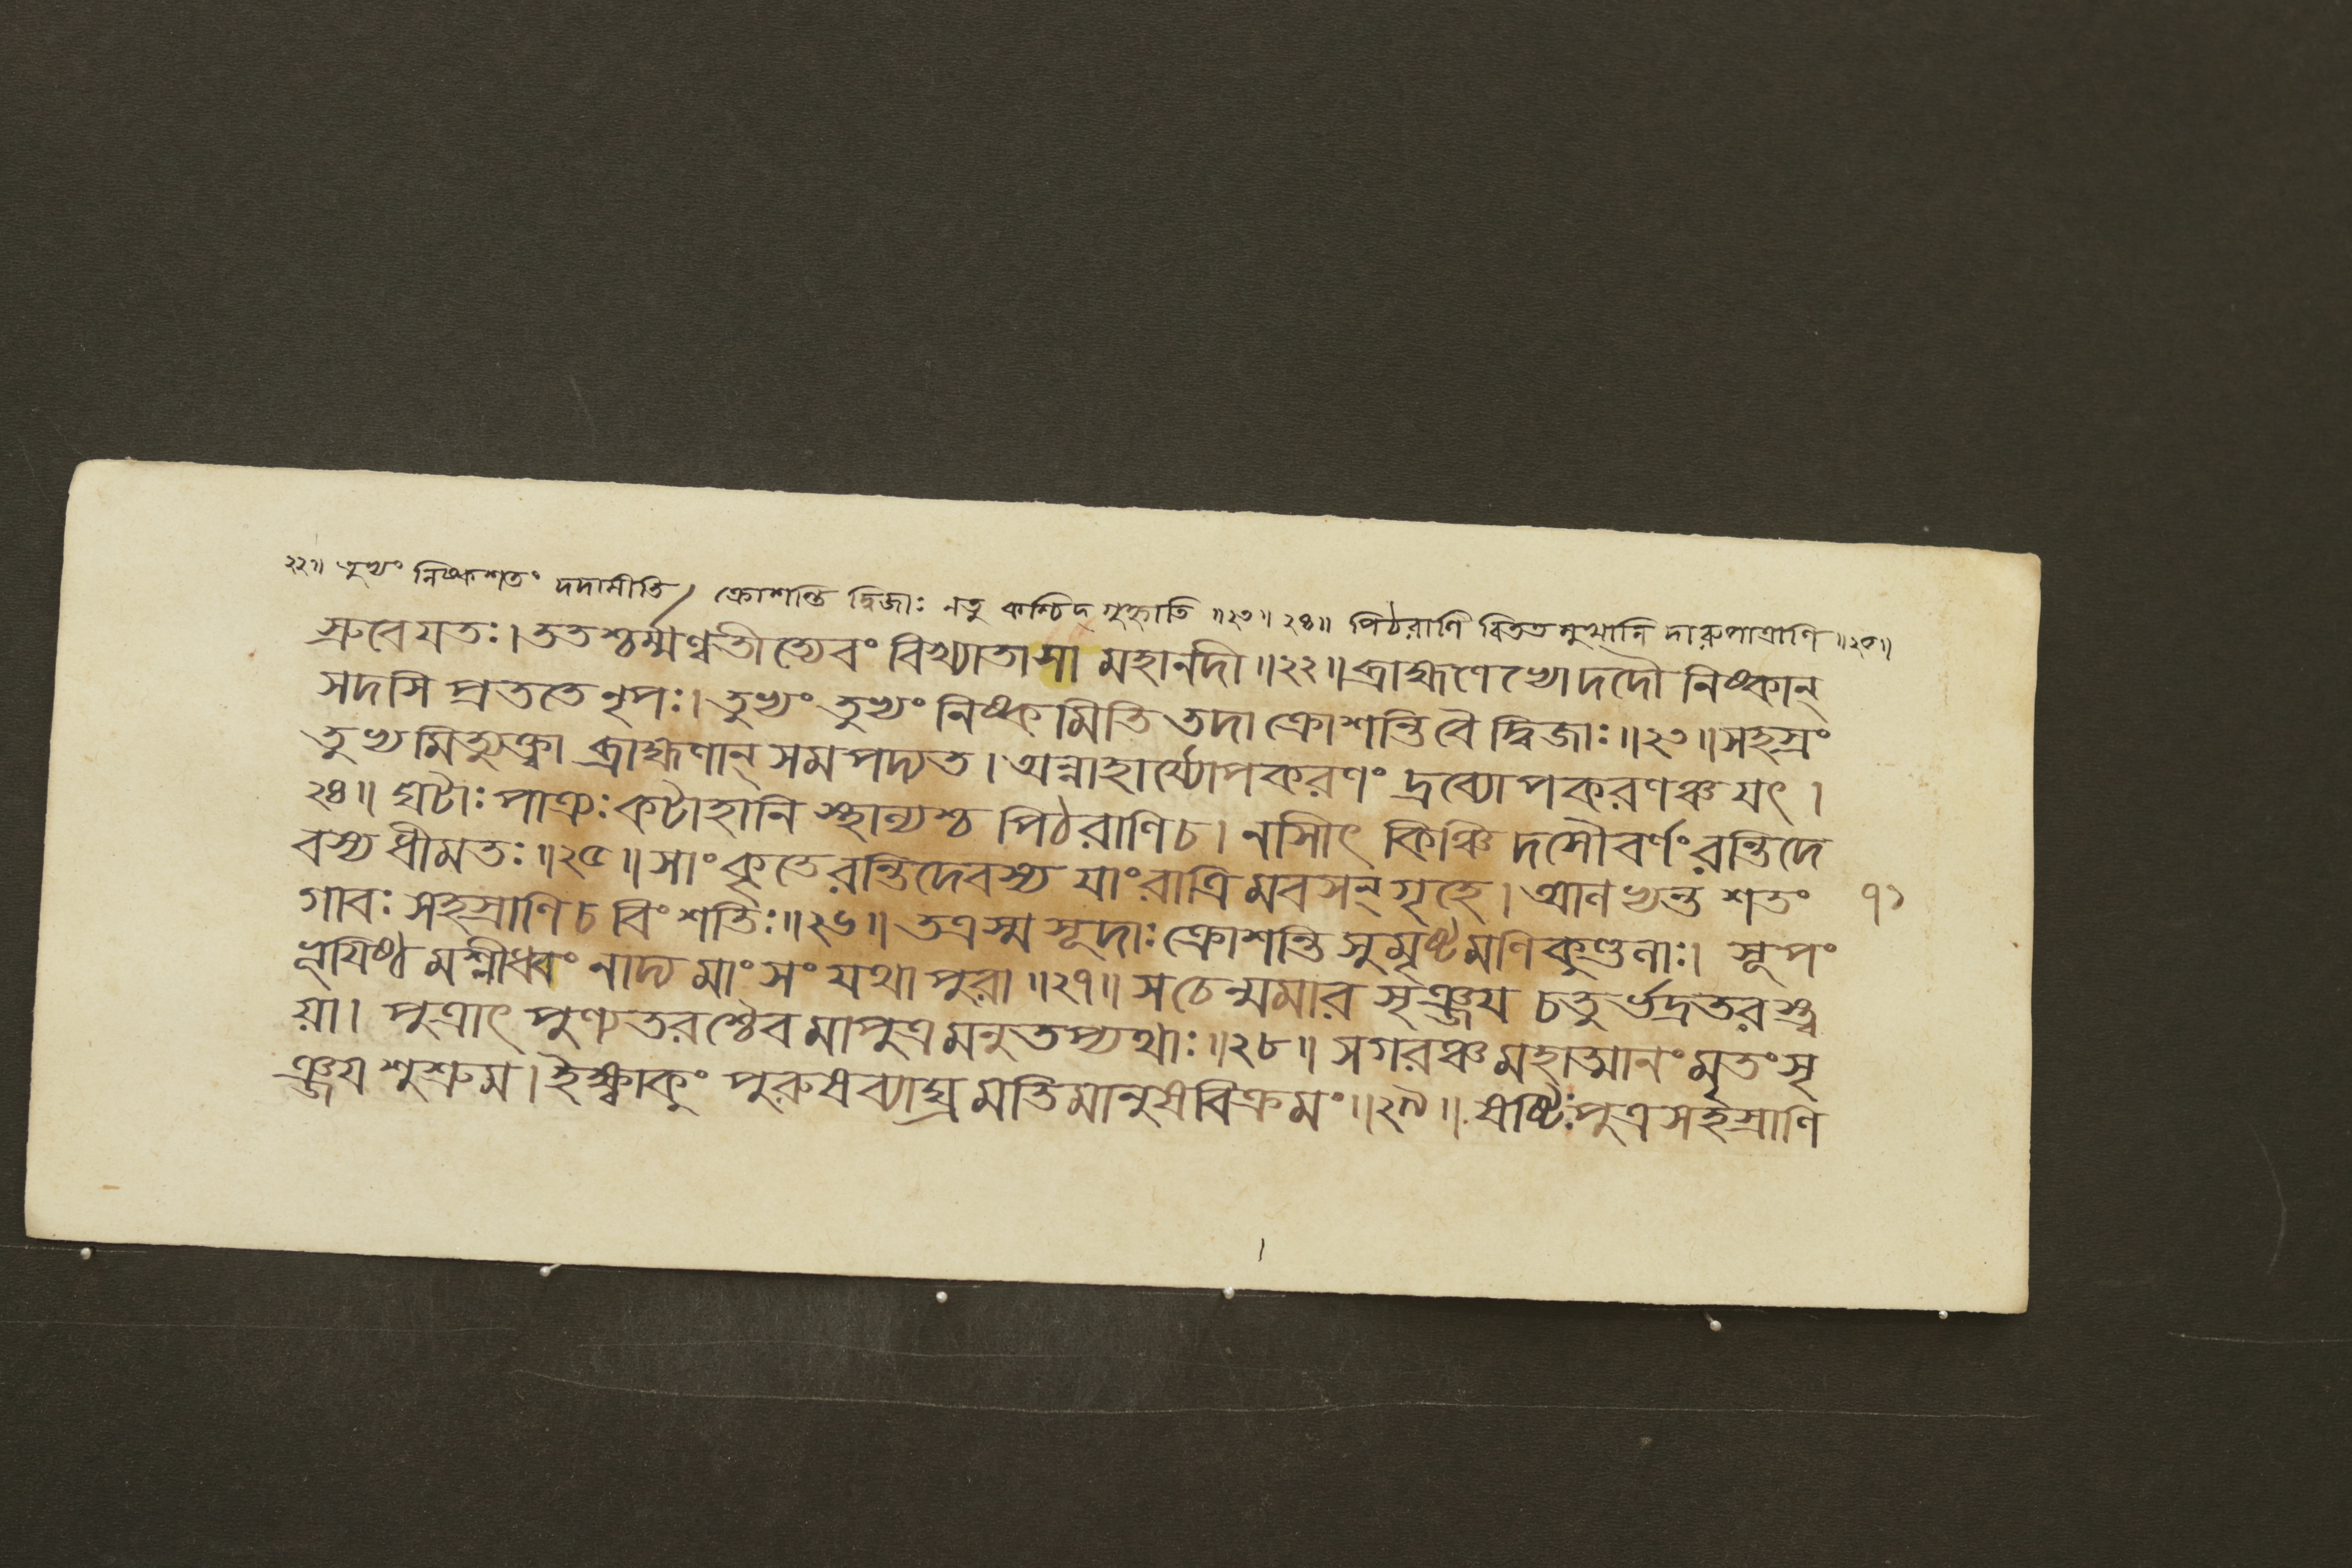 ২২॥ তুভ্যং নিষ্কশতং দদামীতি / ক্রোশন্তি দ্বিজাঃ নতু কশ্চিদ গৃহ্নাতি ॥২৩॥ ২৪॥ পিঠরাণি বিততমুখানি দারুপাত্রাণি ॥২৫॥
স্রুবে যতঃ। ততশ্চর্ম্মণ্বতীত্যেবং বিখ্যাতা সা মহানদী॥২২॥ ব্রাহ্মণেভ্যো দদৌ নিষ্কান্
সদসি প্রততে নৃপঃ। তুভ্যং তুভ্যং নিষ্কমিতি তদা ক্রোশন্তি বৈ দ্বিজাঃ॥২৩॥ সহস্রং
তুভ্যমিত্যুক্ত্বা ব্রাহ্মণান্ সমপদ্যত। অন্নাহার্য্যোপকরণং দ্রব্যোপকরণঞ্চ যৎ।
২৪॥ ঘটাঃ পাত্রঃ কটাহানি স্থাল্যশ্চ পিঠরাণি চ। নসিীৎ কিঞ্চিদসৌবর্ণং রন্তিদে
বস্য ধীমতঃ॥২৫॥ সাংকৃতে রন্তিদেবস্য যাং রাত্রিমবসন্ গৃহে। আলভ্যন্ত শতং ৭১
গাবঃ সহস্রাণি চ বিংশতিঃ॥২৬॥ তত্র স্ম সূদাঃ ক্রোশন্তি সুমৃষ্টমণিকুণ্ডলাঃ। সূপং
ভূযিষ্ঠমশ্নীধ্বং নাদ্য মাংসং যথা পুরা॥২৭॥ সচেন্মমার সৃঞ্জয চতুর্ভদ্রতরস্ত্ব
য়া। পুত্রাৎ পুণ্যতরশ্চৈব মাপুত্রমনুতপ্যথাঃ॥২৮॥ সগরঞ্চ মহাত্মানং মৃতং সৃ
ঞ্জয শুশ্রুম। ইক্ষ্বাকুং পুরুষব্যাঘ্রমতিমানুষবিক্রমং॥২৯॥ ষষ্টিঃ পুত্রসহস্রাণি